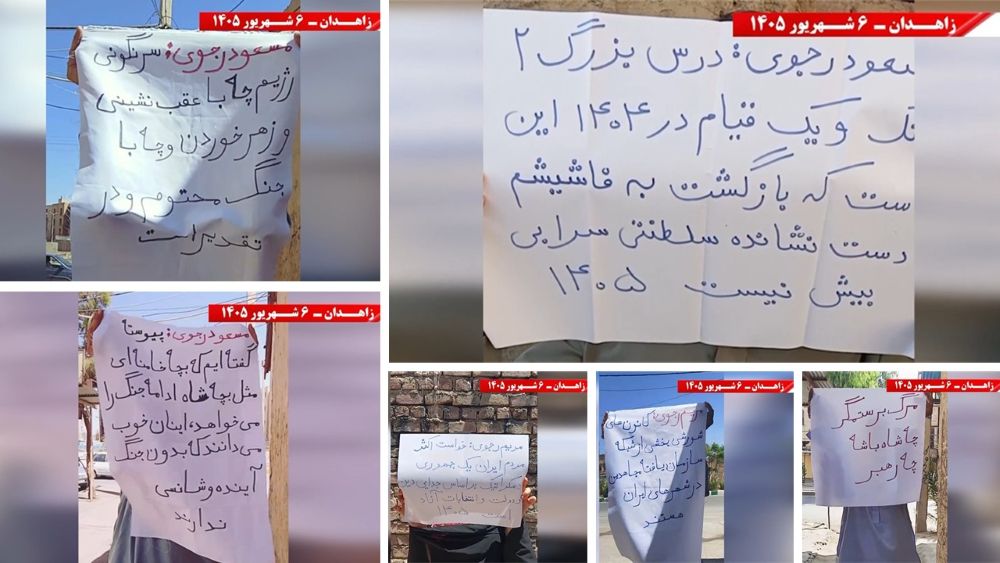 زاهدان ـ ۶ شهریور ۱۴۰۵
مسعود رجوی: سرنگونی
رژیم چه با عقب نشینی
و زهر خوردن و چه با
جنگ محتوم و در
تقدیر است
زاهدان ـ ۶ شهریور ۱۴۰۵
سعود رجوی: درس بزرگ ۲
نگ و یک قیام در ۱۴۰۴ این
ست که بازگشت به فاشیشم
دست نشانده سلطنتی سرابی
بیش نیست ۱۴۰۵
زاهدان ـ ۶ شهریور ۱۴۰۵
مسعود رجوی: پیوسته
گفته ایم که بچه خامنه ای
مثل بچه شاه ادامه جنگ را
می خواهد، اینان خوب
می دانند که بدون جنگ
آینده و شانسی
ندارند
زاهدان ـ ۶ شهریور ۱۴۰۵
مریم رجوی: خواست اکثر
مردم ایران یک جمهوری
دمکراتیک بر اساس جدایی دین
و دولت و انتخابات آزاد
است ۱۴۰۵
زاهدان ـ ۶ شهریور ۱۴۰۵
مریم رجوی: کانون های
شورشی بخشی از شبکه
سازمان یافته مجاهدین
در شهرهای ایران
هستند
زاهدان ـ ۶ شهریور ۱۴۰۵
مرگ بر ستمگر
چه شاه باشه
چه رهبر